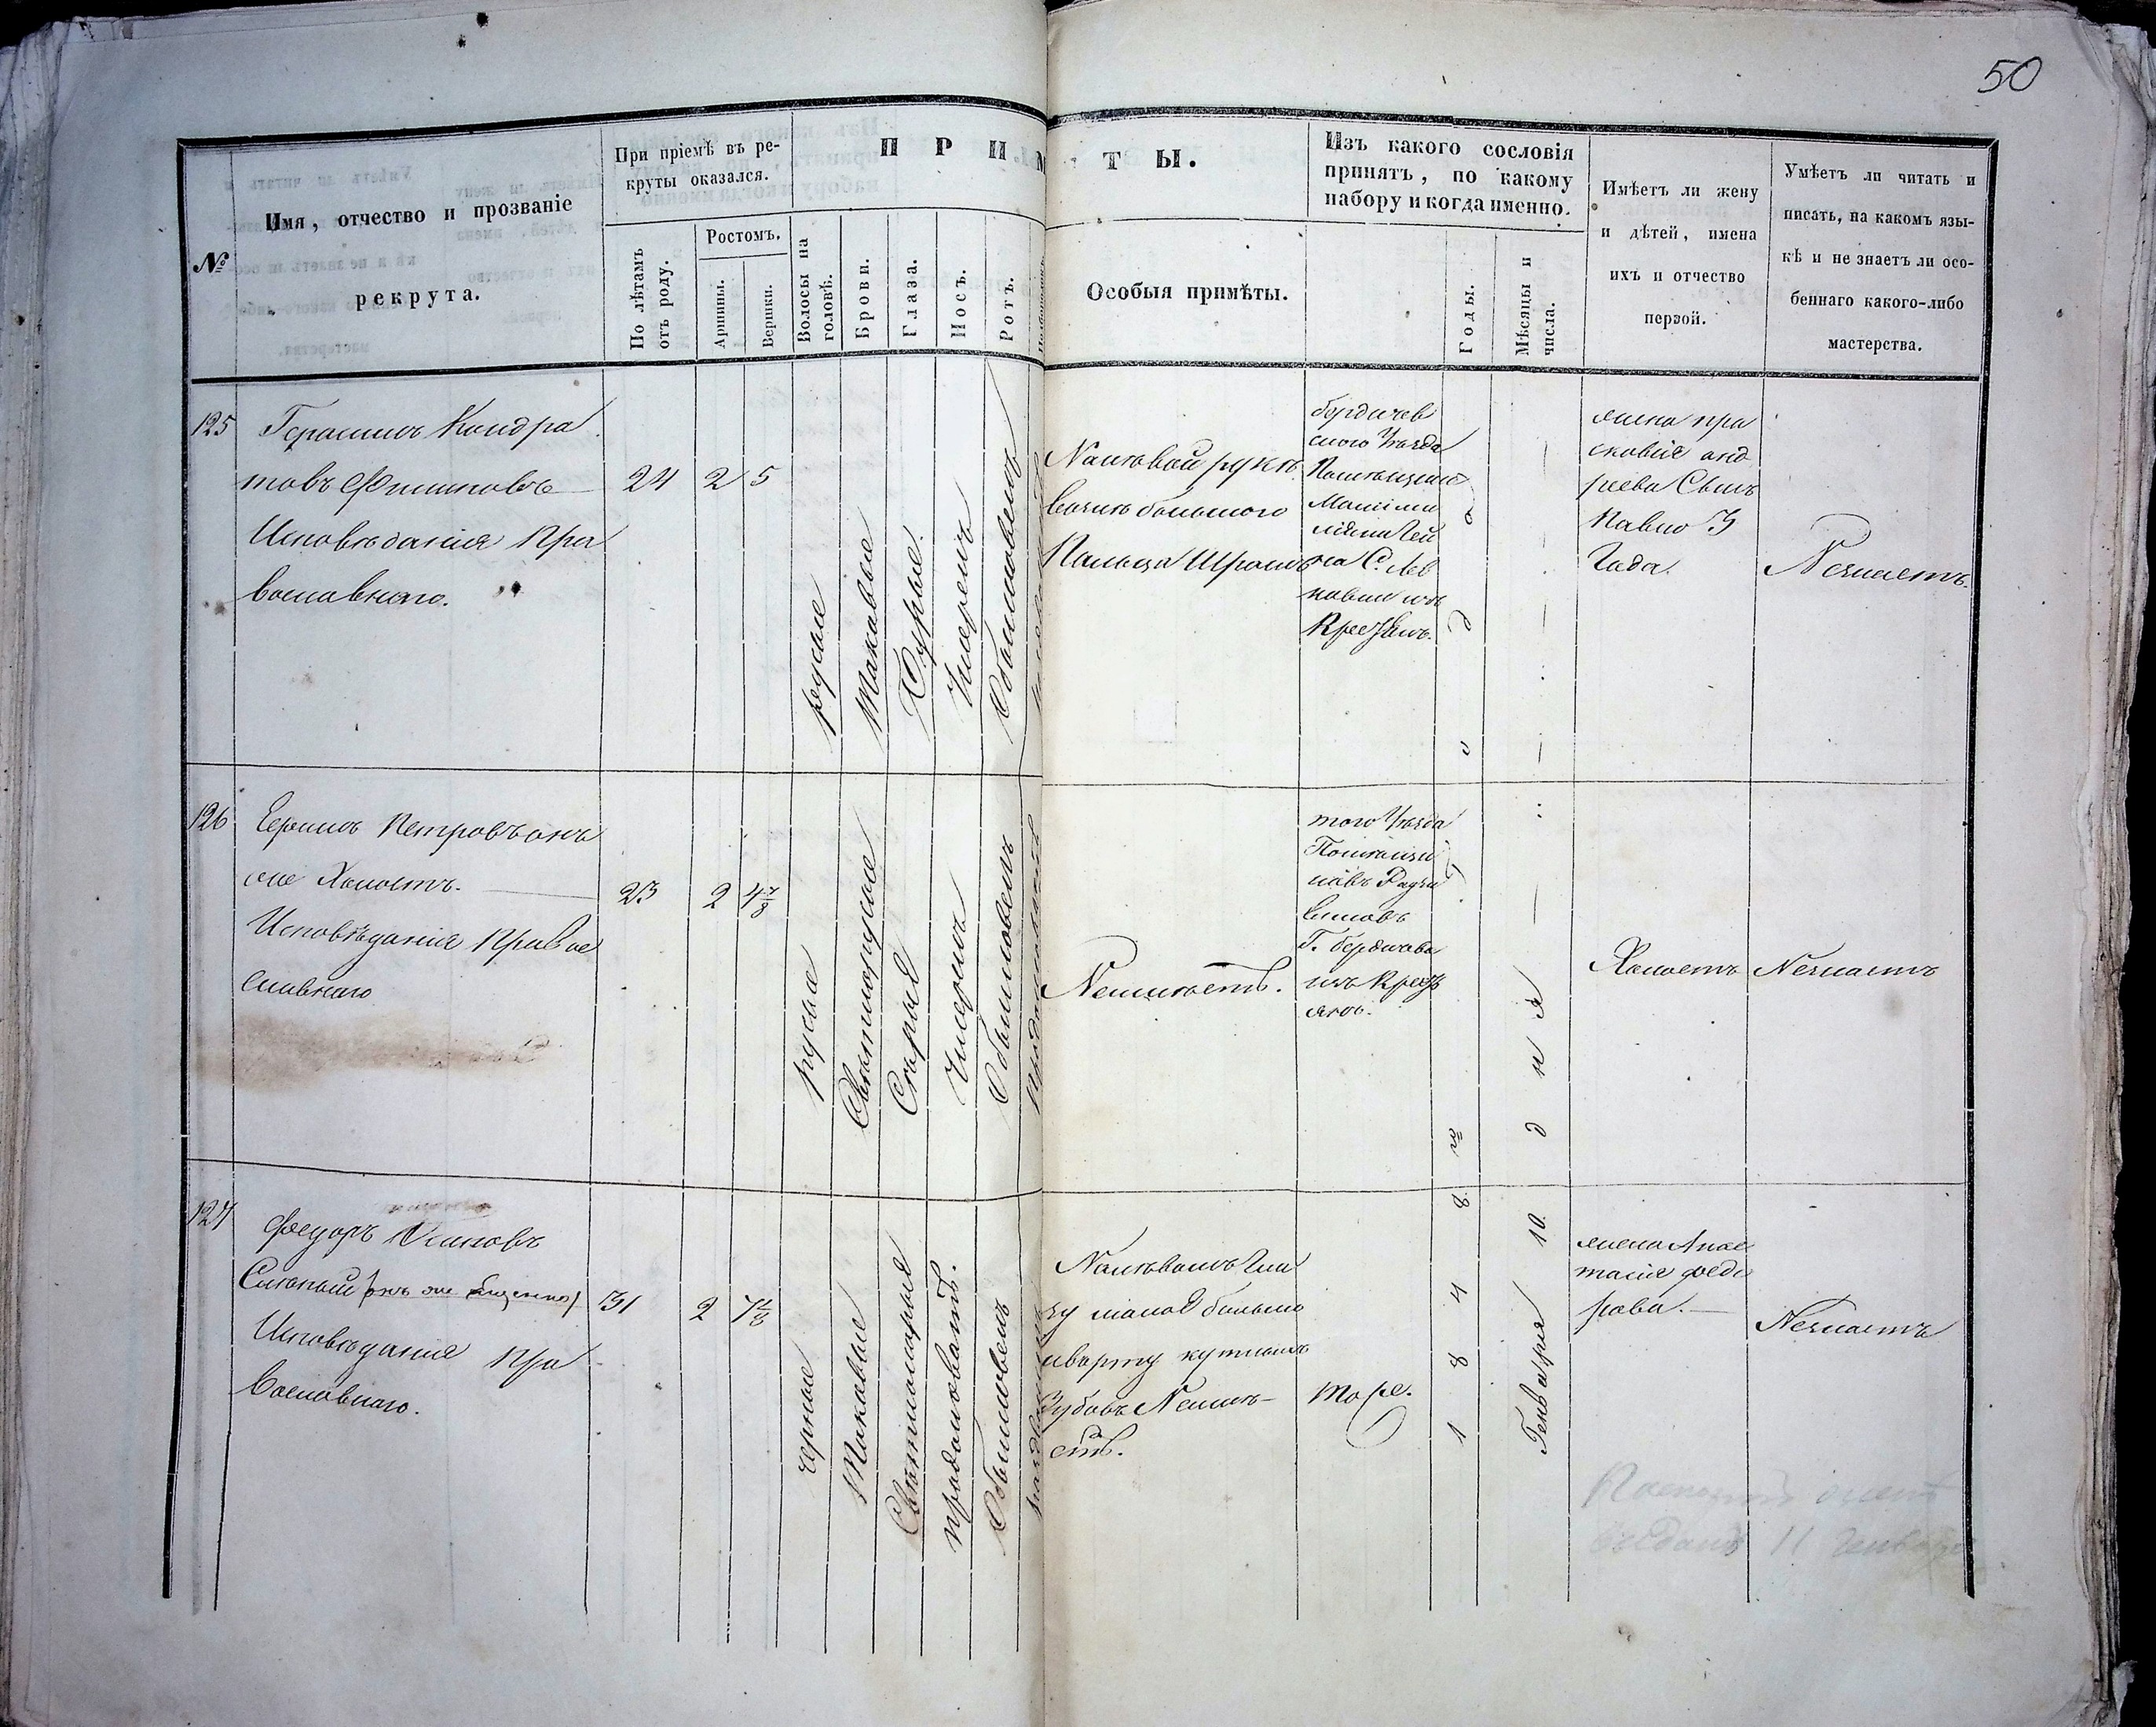 50
№
Имя, отчество и прозваніе
рекрута.
При пріемѣ въ ре-
круты оказался.
По лѣтамъ
отъ роду.
Ростомъ.
Аршины.
Вершки.
П Р И М Ѣ Т Ы.
Волосы на
головѣ.
Брови.
Глаза.
Носъ.
Ротъ.
Особыя примѣты.
Изъ какого сословія
принятъ, по какому
набору и когда именно.
Годы.
Мѣсяцы и
числа.
Имѣетъ ли жену
и дѣтей, имена
ихъ и отчество
первой.
Умѣетъ ли читать и
писать, на какомъ язы-
кѣ и не знаетъ ли осо-
беннаго какого-либо
мастерства.
125
Герасимъ Кондра
товъ Филиповъ
Исповѣданія Пра
вославнаго.
24
2
5
русые
Таковые
Сѣрые
Умѣренъ
Обыкновенъ
На лѣвой рукѣ
возлѣ большого
Пальца Шрамъ
бердичев
скаго Уѣзда
Помѣщика
С. Лев
ковки изъ
Крестьянъ.
жена Пра
сковія анд
реева Сынъ
Павло 3
Года.
Незнаетъ.
126
Ефимъ Петровъ онъ
же Холостъ.
Исповѣданія Правос
лавнаго
23
2
4 7/8
русые
Свѣтлорусые
Сѣрые
Умѣренъ
Обыкновенъ
Неимѣетъ.
того Уѣзда
Помѣщи
ковъ Радзи
виловъ
Г. бердичева
изъ Крестъ
янъ.
Холостъ
Незнаетъ
127
Федоръ Осиповъ
Слѣпый (онъ же
Исповѣданія Пра
вославнаго.
31
2
7 1/8
черные
Таковые
Свѣтлосѣрые
продолговатъ.
Обыкновенъ
На лѣвомъ Гла
зу малое бѣльмо
вверху кутнихъ
Зубовъ Неимѣ-
етъ.
Тоже.
1 8 4 8 го
г о д а
Генваря 10 дня
жена Анас
тасія федо
рова.
Незнаетъ
11 Генваря